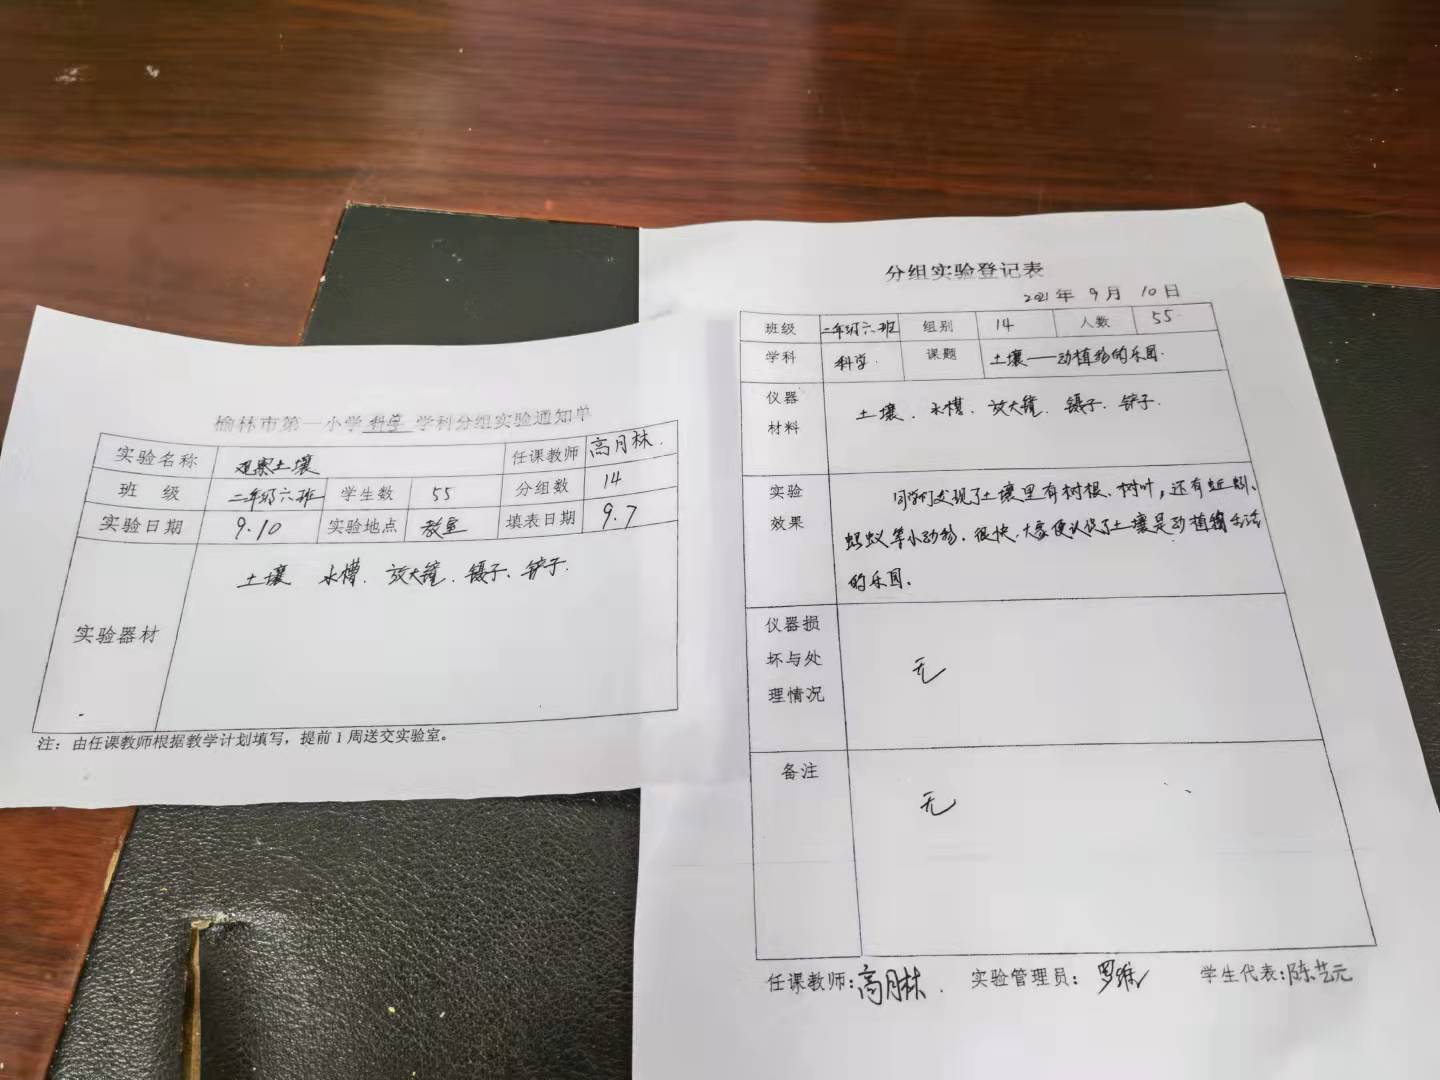 榆林市第一小学 科学 学科分组实验通知单
实验名称 观察土壤 任课教师 高月林.
班 级 二年级六班 学生数 55 分组数 14
实验日期 9.10 实验地点 教室 填表日期 9.7
实验器材 土壤 水槽、放大镜、镊子、铲子.
注：由任课教师根据教学计划填写，提前1周送交实验室。
分组实验登记表
2021年 9月 10日
班级 二年级六班 组别 14 人数 55
学科 科学. 课题 土壤——动植物的乐园.
仪器 土壤、水槽、放大镜、镊子、铲子.
材料
实验 同学们发现了土壤里有树根、树叶，还有蚯蚓、
效果 蚂蚁等小动物，很快，大家便认识了土壤是动植物生活
的乐园。
仪器损
坏与处 无
理情况
备注
无
任课教师：高月林. 实验管理员： 学生代表：陈艺元